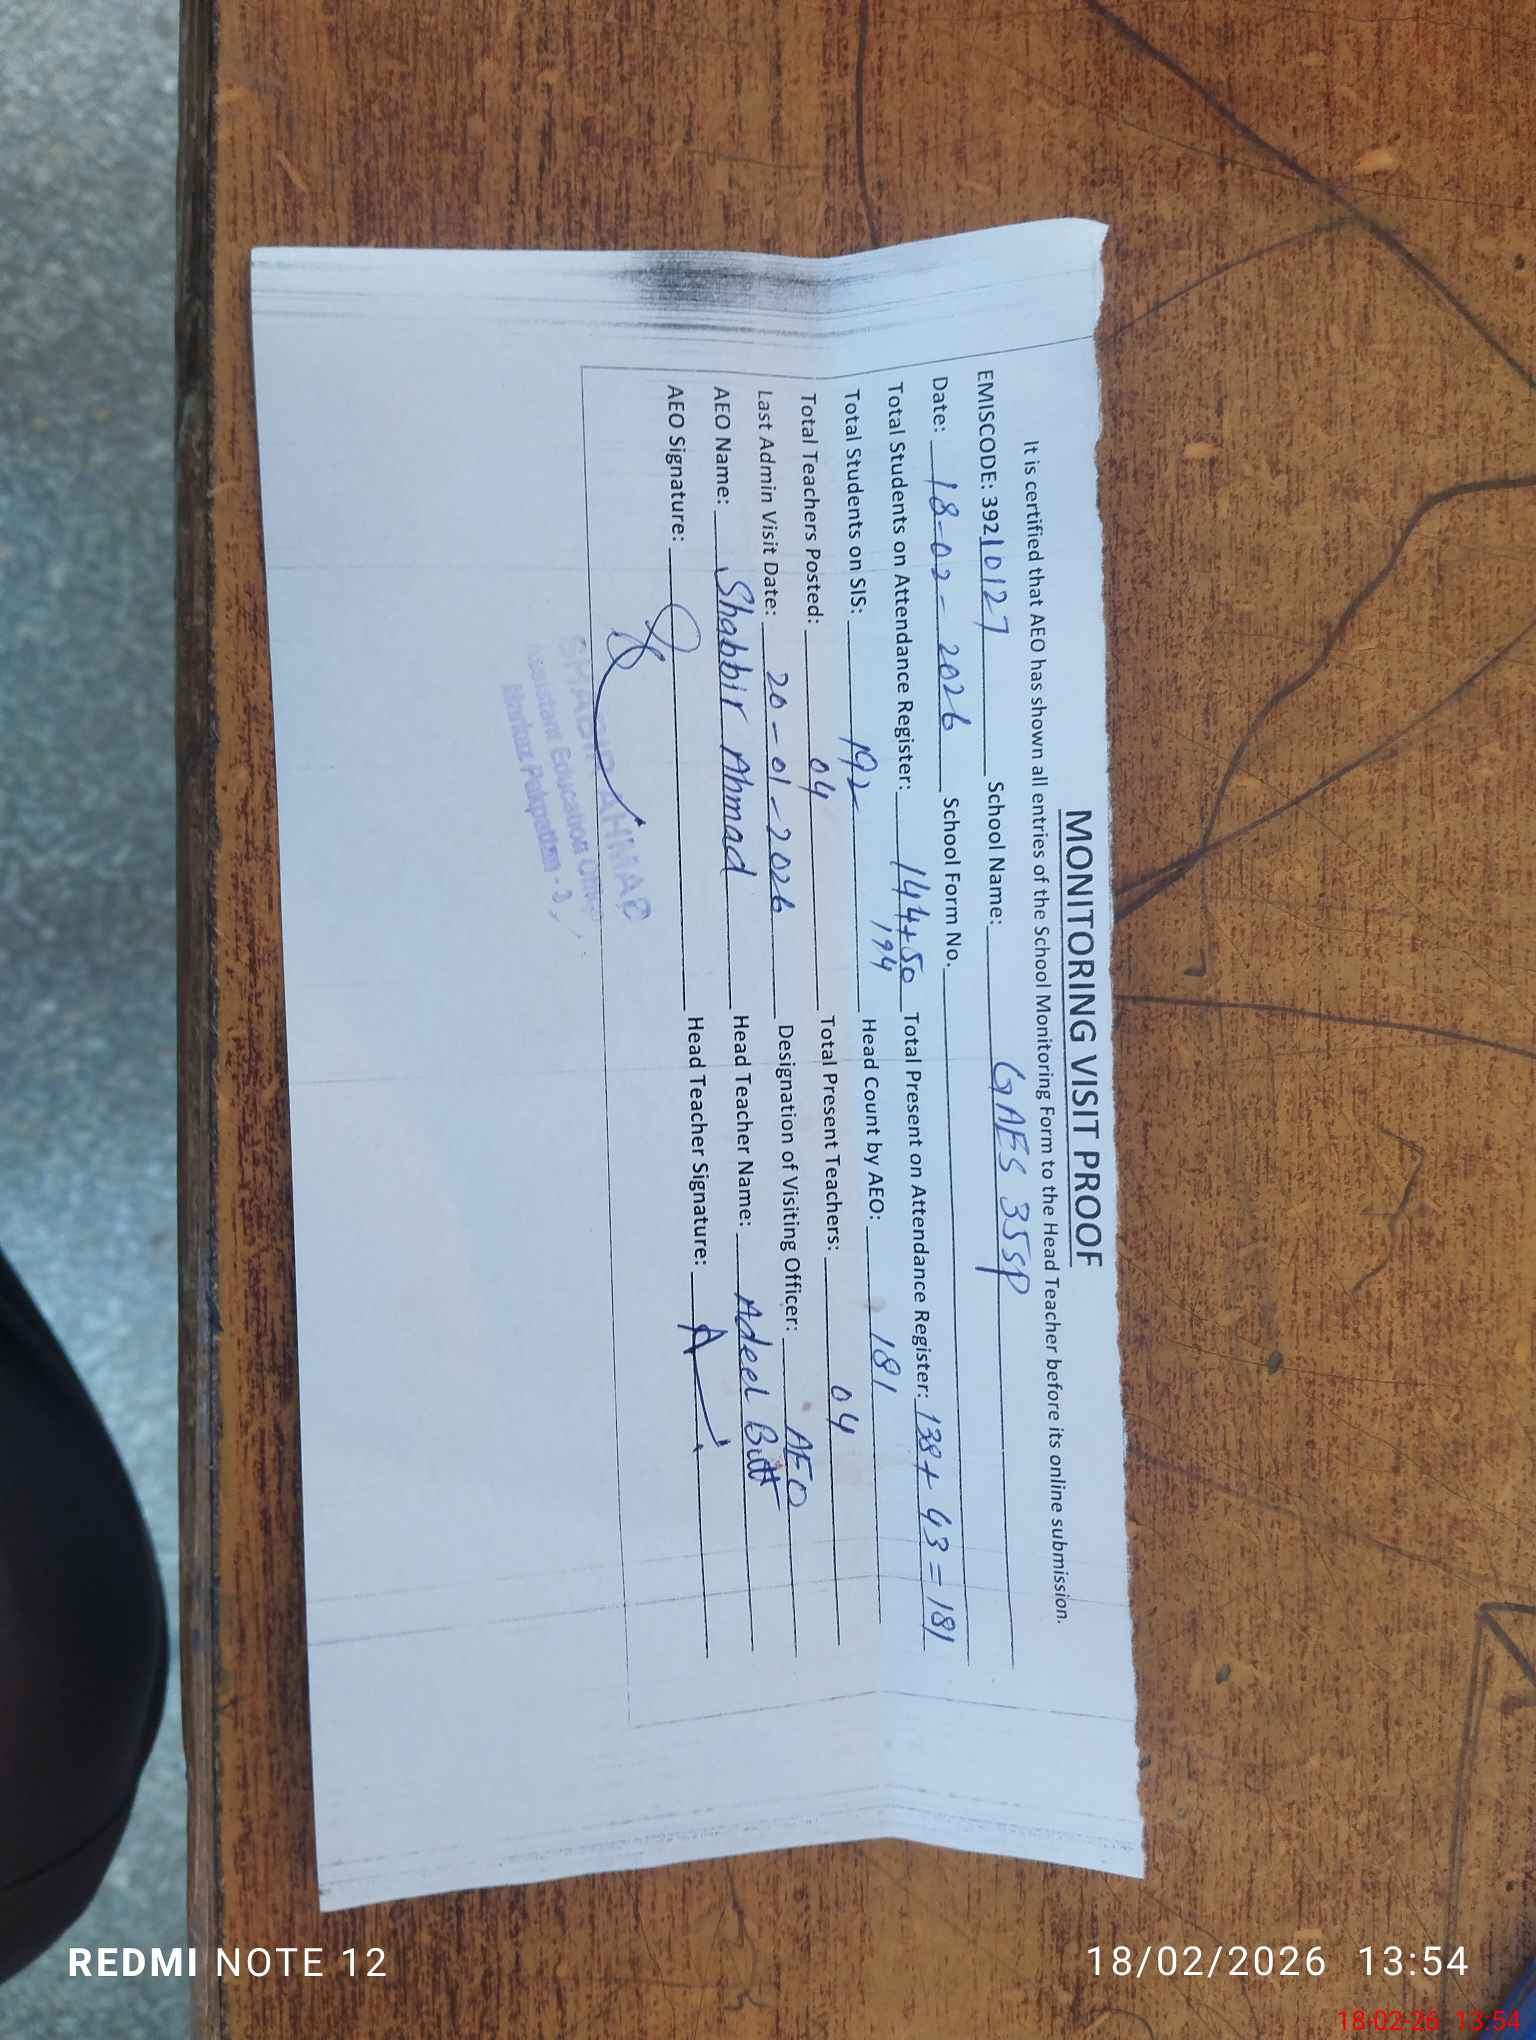 MONITORING VISIT PROOF
It is certified that AEO has shown all entries of the School Monitoring Form to the Head Teacher before its online submission.
EMISCODE: 39210127 School Name: GAES 35SP
Date: 18-02-2026 School Form No.
Total Students on Attendance Register: 144+50 Total Present on Attendance Register: 138+43=181
194
Total Students on SIS: 192 Head Count by AEO: 181
Total Teachers Posted: 04 Total Present Teachers: 04
Last Admin Visit Date: 20-01-2026 Designation of Visiting Officer: AEO
AEO Name: Shabbir Ahmad Head Teacher Name: Adeel Butt
AEO Signature: Head Teacher Signature:
AHMAD
Assistant Education
Markaz Pakpattan - 3
REDMI NOTE 12
18/02/2026 13:54
18-02-26 13:54